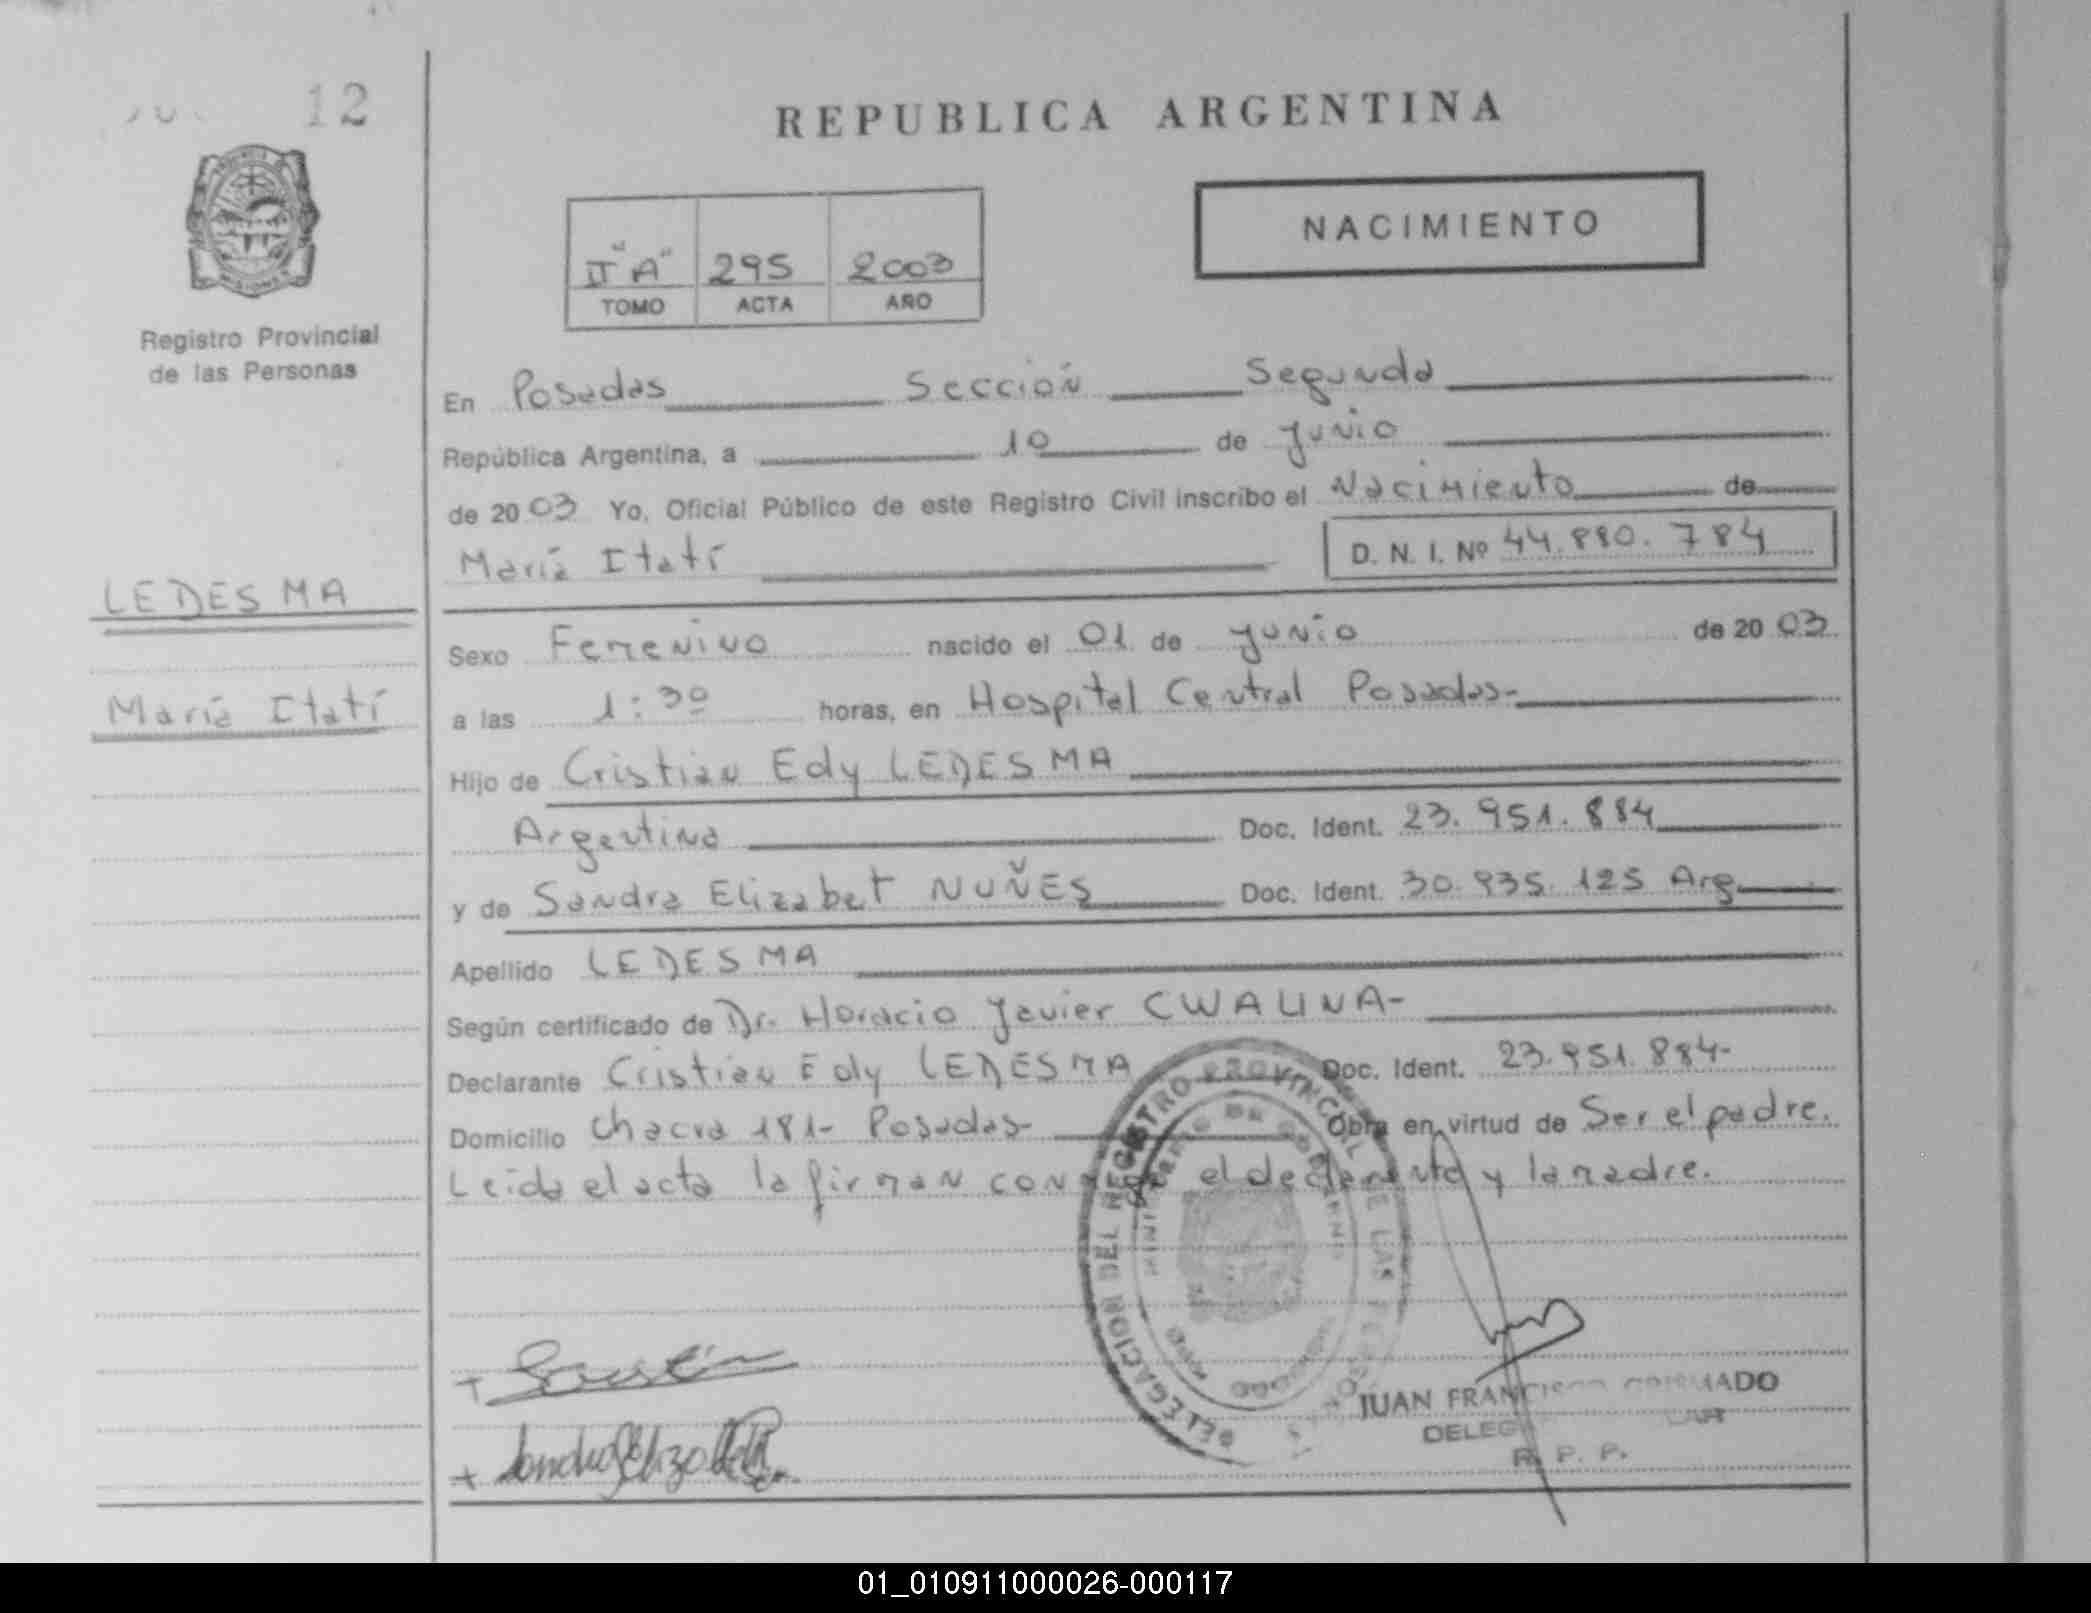 12
REPUBLICA ARGENTINA
NACIMIENTO
II "A" 295 2003
TOMO ACTA AÑO
Registro Provincial
de las Personas
En Posadas Sección Segunda
República Argentina, a 10 de Junio
de 2003 Yo, Oficial Público de este Registro Civil inscribo el Nacimiento de
María Itatí D. N. I. Nº 44.880.784
LEDESMA
María Itatí
Sexo Femenino nacido el 01 de Junio de 2003
a las 1:30 horas, en Hospital Central Posadas-
Hijo de Cristian Edy LEDESMA
Argentina Doc. Ident. 23.951.884
y de Sandra Elizabet NUÑES Doc. Ident. 30.935.125 Arg.
Apellido LEDESMA
Según certificado de Dr. Horacio Javier CWALINA-
Declarante Cristian Edy LEDESMA Doc. Ident. 23.951.884-
Domicilio Chacra 181- Posadas- Obra en virtud de Ser el padre.
Leida el acta la firman con el declarante y la madre.
DELEGACION DEL REGISTRO PROVINCIAL DE LAS
JUAN FRANCISCO
R. P. P.
01_010911000026-000117